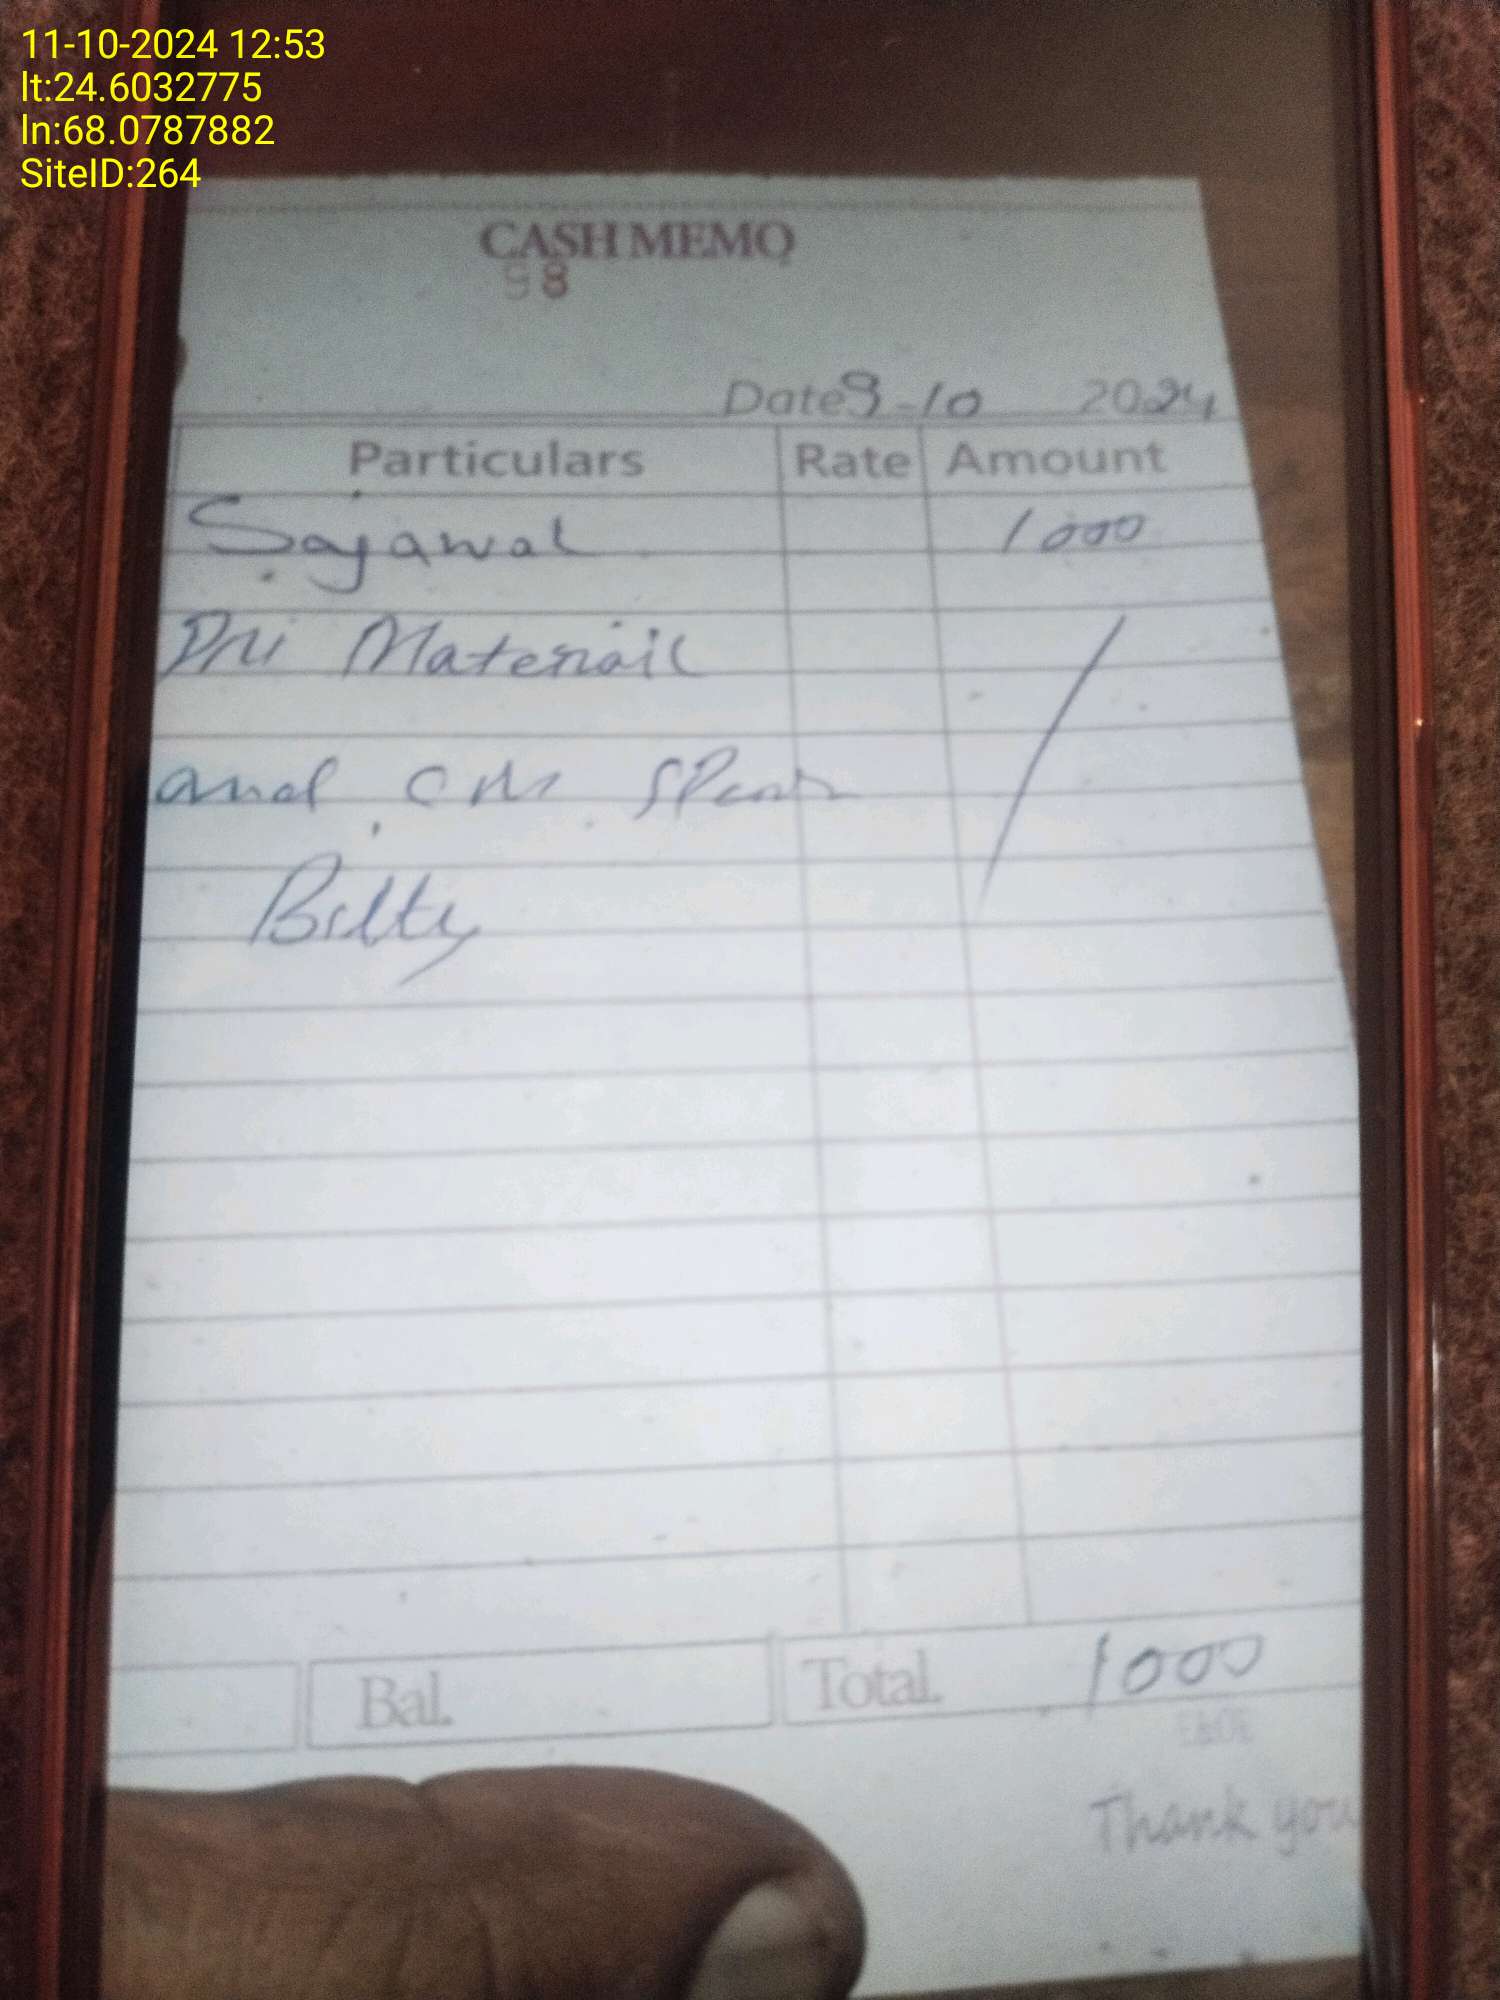 11-10-2024 12:53
lt:24.6032775
ln:68.0787882
SiteID:264
CASH MEMO
98
Date 9-10 2024
Particulars Rate Amount
Sajawal 1000
Materiail
and
Bilty
Bal. Total. 1000
E&OE
Thank you